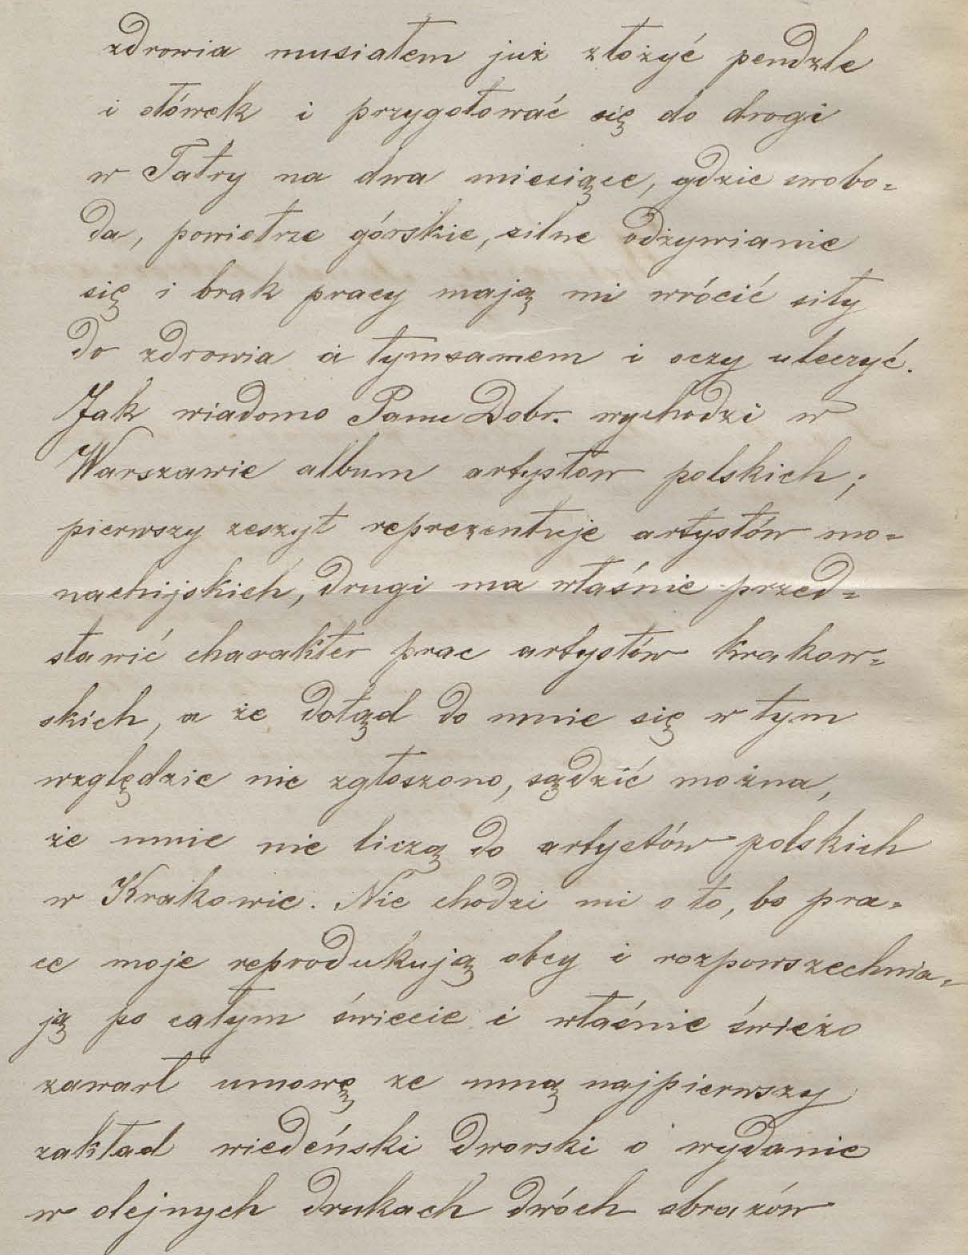 zdrowia musiałem już złożyć pendzle
i ołówek i przygotować się do drogi
w Tatry na dwa miesiące, gdzie swobo=
da, powietrze górskie, silne odżywianie
się i brak pracy mają mi wrócić siły
do zdrowia a tymsamem i oczy uleczyć.
Jak wiadomo Panu Dobr. wychodzi w
Warszawie album artystow polskich;
pierwszy zeszyt reprezentuje artystów mo=
nachijskich, drugi ma właśnie przed=
stawić charakter prac artystów krakow=
skich, a że dotąd do mnie się w tym
względzie nie zgłoszono, sądzić można,
że mnie nie liczą do artystów polskich
w Krakowie. Nie chodzi mi o to, bo pra=
ce moje reprodukują obcy i rozpowszechnia=
ją po całym świecie i właśnie świeżo
zawarł umowę ze mną najpierwszy
zakład wiedeński dworski o wydanie
w olejnych drukach dwóch obrazów